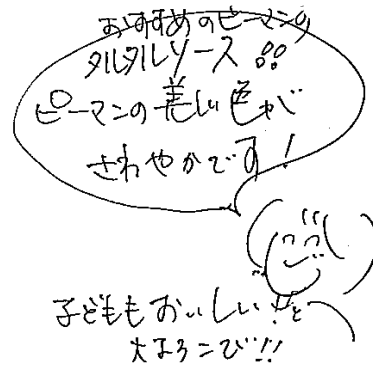 おすすめのピーマンの
タルタルソース!!
ピーマンの美しい色が
さわやかです!
子どももおいしい!!と
大よろこび!!